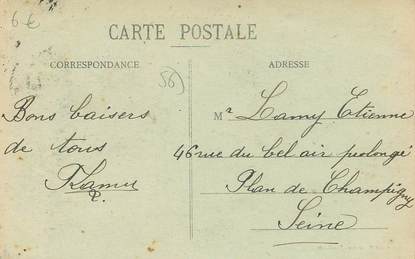 6 €
CARTE POSTALE
CORRESPONDANCE
ADRESSE
56
Bons baisers
de tous
Mr Lamy Etienne
46 rue du bel air prolongé
Plan de Champigny
Seine